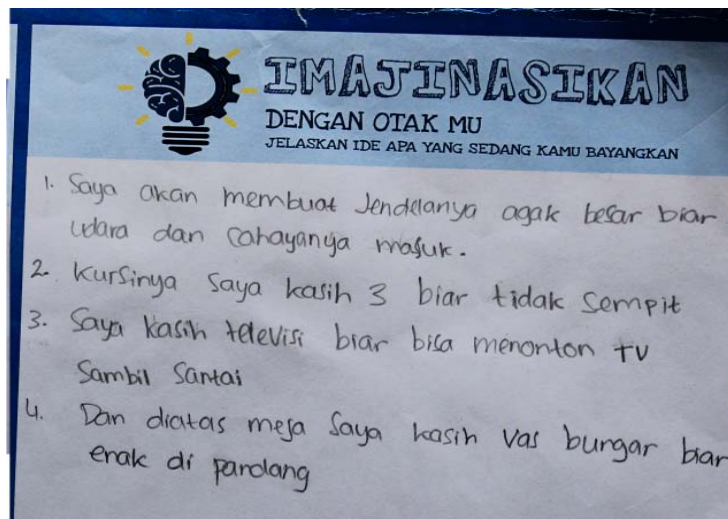 IMAJINASIKAN
DENGAN OTAK MU
JELASKAN IDE APA YANG SEDANG KAMU BAYANGKAN
1. Saya akan membuat Jendelanya agak besar biar
udara dan Cahayanya masuk.
2. Kursinya Saya kasih 3 biar tidak Sempit
3. Saya kasih televisi biar bisa menonton TV
Sambil Santai
4. Dan diatas meja Saya kasih vas bungar biar
enak di pandang